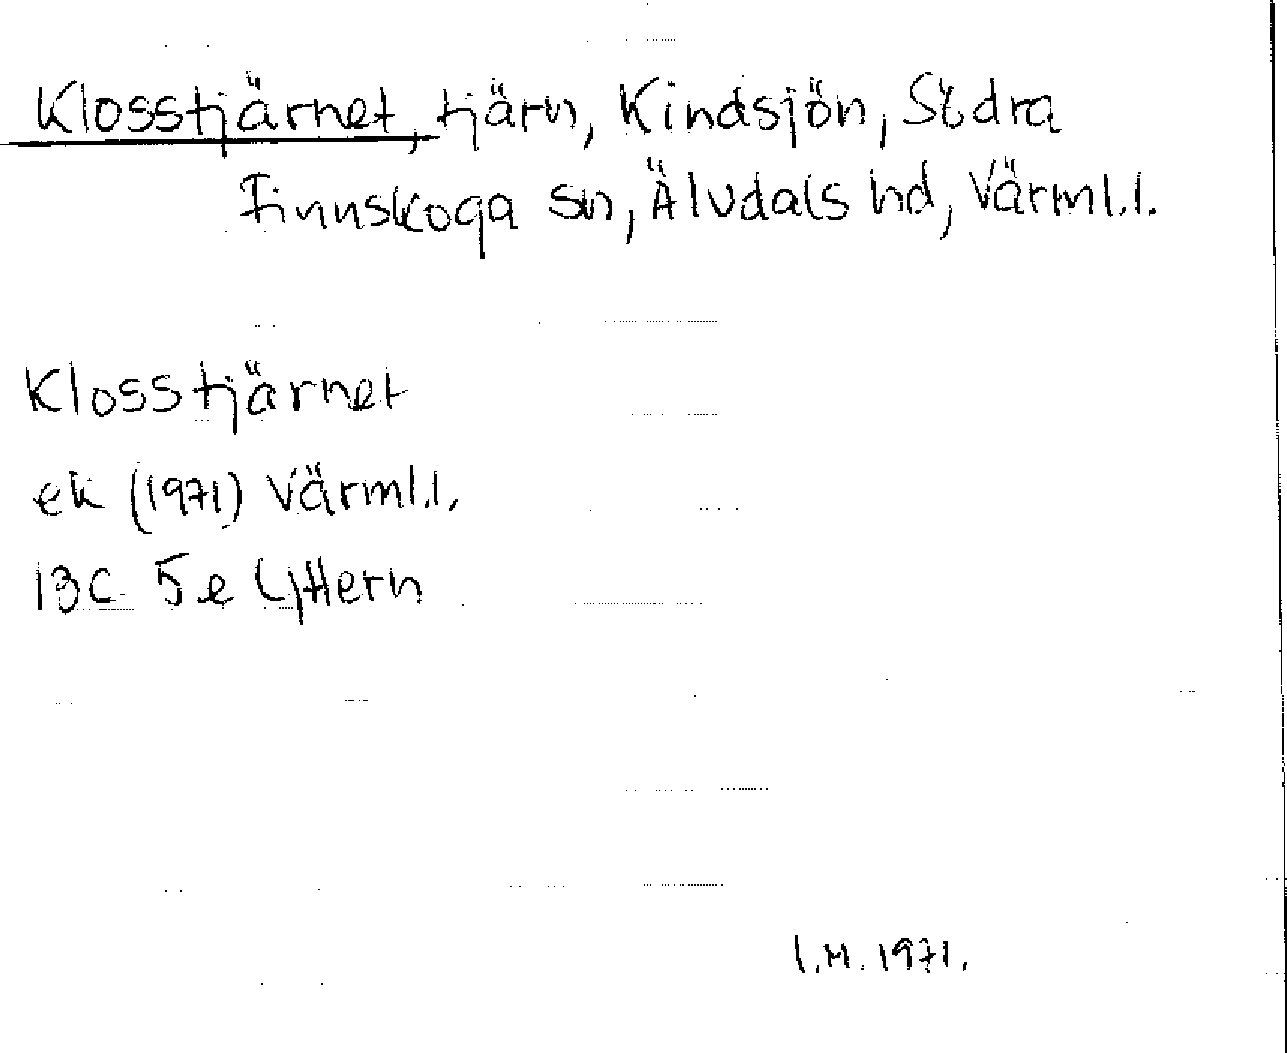 Klosstjärnet, tjärn, Kindsjön, Södra
Finnskoga sn, Älvdals hd, Värml.l.
Klosstjärnet
ek (1971) Värml.l.
13C 5e Lyttern
I.M. 1971.